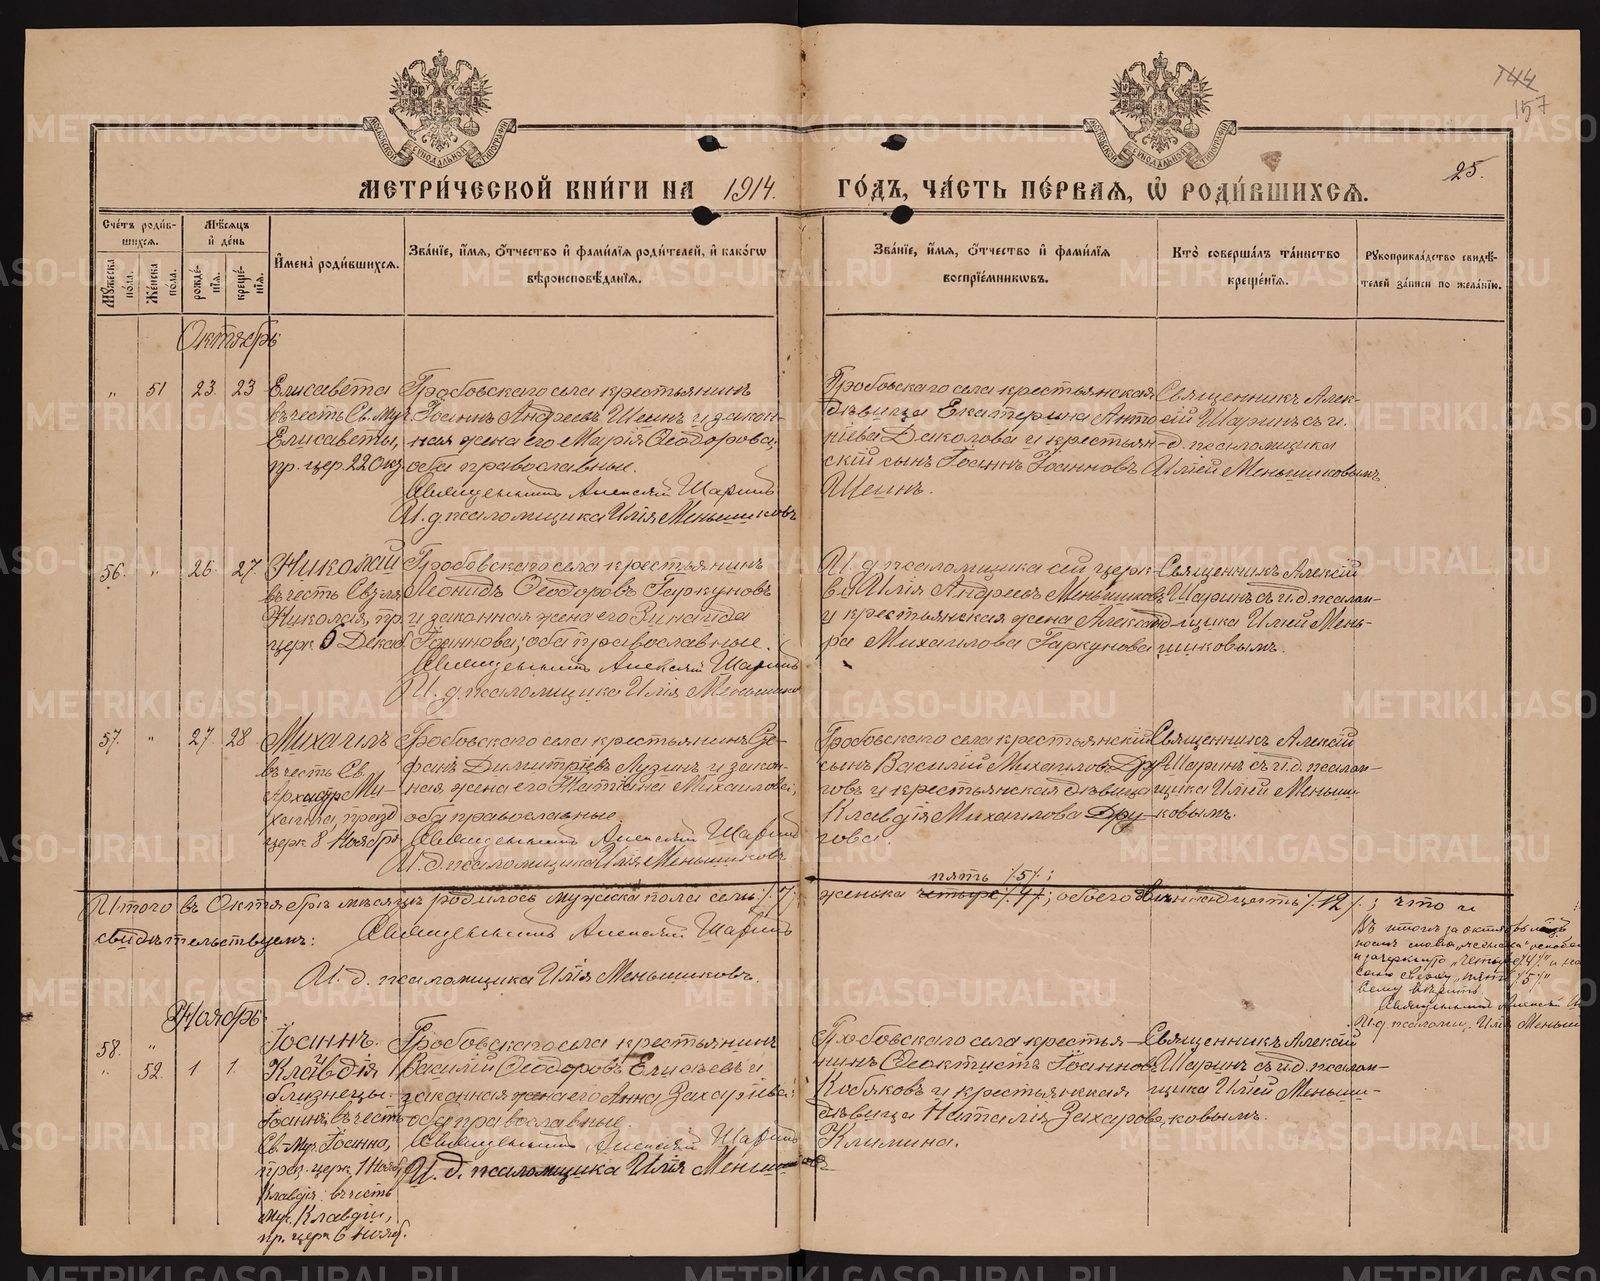 144
157
25.
МЕТРИ́ЧЕСКОЙ КНИ́ГИ НА 1914. ГО́ДЪ, ЧА́СТЬ ПЕ́РВАЯ, Ѡ РОДИ́ВШИХСЯ.
Сче́тъ роди́вшихся.
Мѣ́сяцъ и҆ де́нь
Мꙋ́жеска по́ла.
Же́нска по́ла.
рожде́нїя.
креще́нїя.
И҆мена̀ роди́вшихся.
Зва́нїе, и҆́мя, ѻ҆́тчество и҆ фами́лїя роди́телей, и҆ како́гѡ
вѣроисповѣ́данїя.
Зва́нїе, и҆́мя, ѻ҆́тчество и҆ фами́лїя
воспрїе́мникѡвъ.
Кто̀ соверша́лъ та́инство
креще́нїя.
Рꙋкоприкла́дство свидѣ́-
телей за́писи по жела́нїю.
Октябрь
" 51 23. 23
Елисавета
въ честь Св. Му.
Елисаветы,
пр. цер. 22 окт.
Гробовскаго села крестьянинъ
Іоаннъ Андреевъ Шеинъ и закон-
ная жена его Марія Ѳеодорова;
оба православные.
Священникъ Алексій Шаринъ
И. д. псаломщика Илія Меньшиковъ
Гробовскаго села крестьянская
дѣвица Екатерина Анто
ніева Дасколова и крестьян-
скій сынъ Іоаннъ Іоанновъ
Шеинъ.
Священникъ Алек-
сій Шаринъ съ и.
д. псаломщика
Иліей Меньшиковымъ
56. " 26. 27.
Николай
въ честь Свят.
Николая, пр.
церк. 6 Декаб.
Гробовскаго села крестьянинъ
Леонидъ Ѳеодоровъ Гаркуновъ
и законная жена его Зинаида
Іоаннова; оба православные.
Священникъ Алексій Шаринъ
И. д. псаломщика Илія Меньшиков
И. д. псаломщика сей церк-
ви Илія Андреевъ Меньшиковъ
и крестьянская жена Александ
ра Михаилова Гаркунова
Священникъ Алексій
Шаринъ съ и. д. псалом-
щика Иліей Мень-
шиковымъ.
57. " 27. 28
Михаилъ
въ честь Св.
Архистр. Ми-
хаила, празд.
церк. 8 Ноября
Гробовскаго села крестьянинъ Сте-
фанъ Димитріевъ Лузинъ и закон-
ная жена его Татіана Михаилова,
оба православные.
Священникъ Алексій Шаринъ
И. д. псаломщика Илія Меньшиковъ
Гробовскаго села крестьянскій
сынъ Василій Михаиловъ Дру-
говъ и крестьянская дѣвица
Клавдія Михаилова Дру-
гова.
Священникъ Алексій
Шаринъ съ и. д. псалом-
щика Иліей Меньши-
ковымъ.
пять /5/.;
Итого въ Октябрѣ мѣсяцѣ родилось мужска пола семь /7/, женска четыре /4/; обоего двѣнадцать /12/.; что и
свидѣтельствуемъ:
Священникъ Алексій Шаринъ
И. д. псаломщика Илія Меньшиковъ.
Въ итогѣ за октябрь мѣсяцъ
послѣ слова „женска"
и зачеркнуто „четыре /4/." и на-
сано сверху „пять /5/"
сему вѣрить.
Священникъ Алексій Ш
И. д. псаломщ. Илія Меньши
Ноябрь
58. "
" 52. 1 1.
Іоаннъ.
Клавдія
близнецы.
Іоаннъ, въ честь
Св. Муч. Іоанна,
праз. церк. 1 Нояб.,
Клавдія въ честь
муч. Клавдіи,
пр. церк. 6 Нояб.
Гробовскаго села крестьянинъ
Василій Ѳеодоровъ Елисѣевъ и
законная жена его Анна Захаріева;
оба православные.
Священникъ Алексій Шаринъ
И. д. псаломщика Илія Меньшиковъ
Гробовскаго села крестья-
нинъ Ѳеоктистъ Іоанновъ
Кобяковъ и крестьянская
дѣвица Наталія Захарова
Климина.
Священникъ Алексій
Шаринъ съ и. д. псалом-
щика Иліей Меньши-
ковымъ.